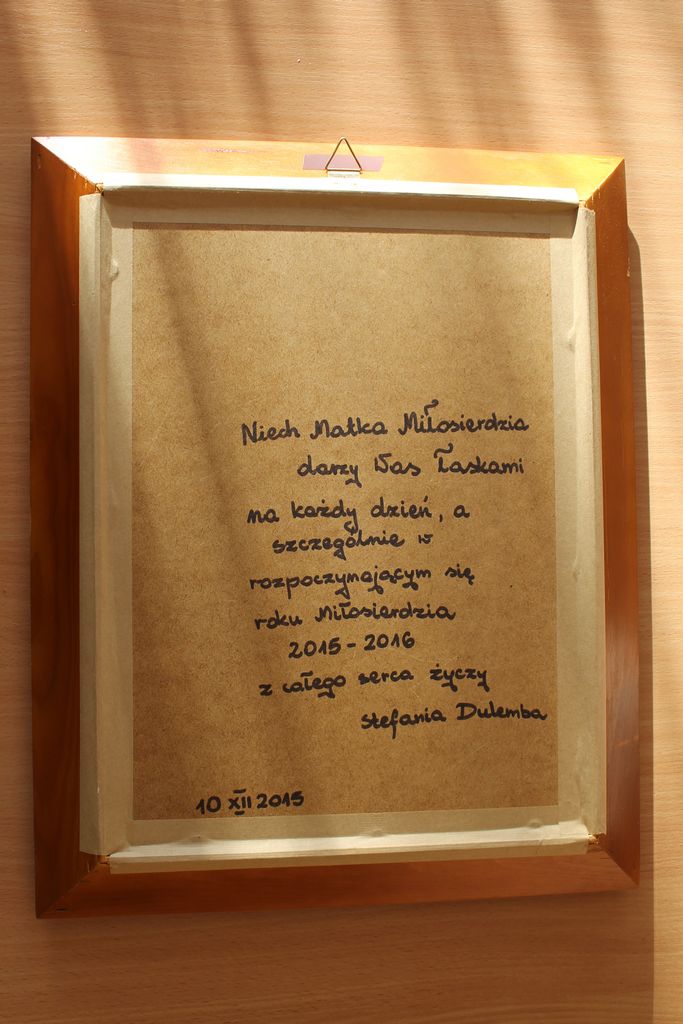 Niech Matka Miłosierdzia
darzy Was Łaskami
na każdy dzień, a
szczególnie w
rozpoczynającym się
roku Miłosierdzia
2015-2016
z całego serca życzy
Stefania Dulemba
10 XII 2015